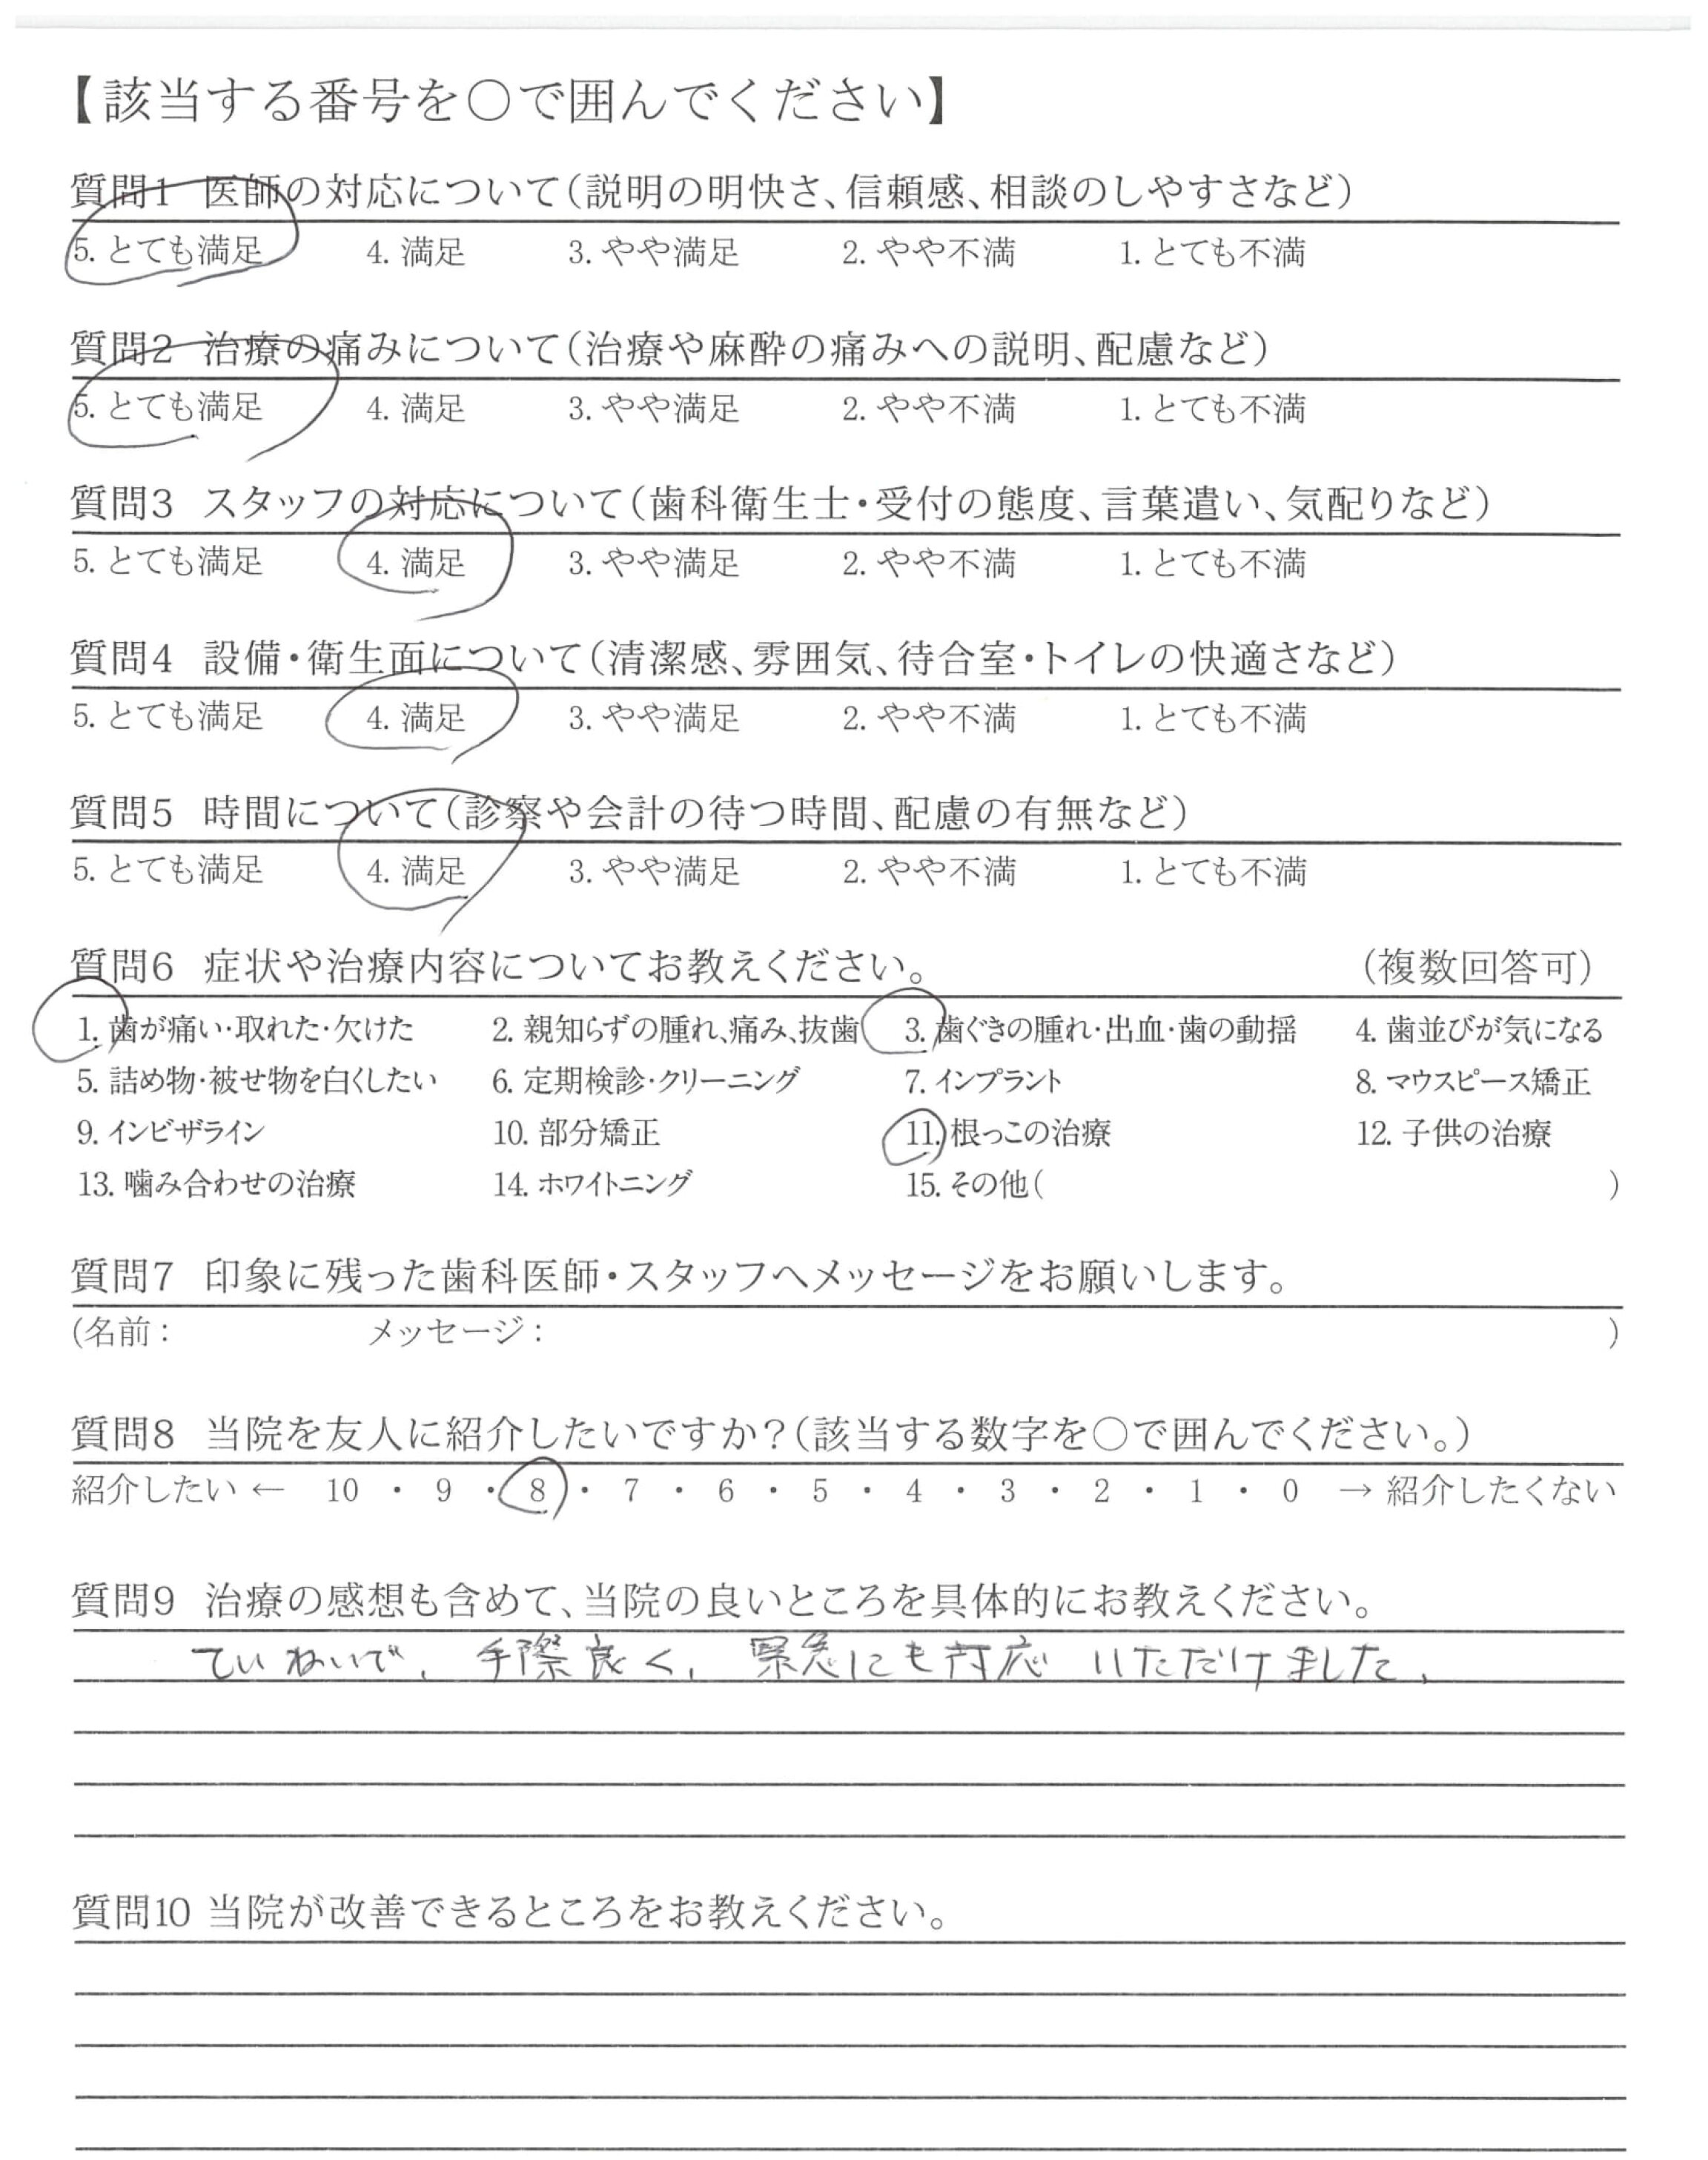 【該当する番号を○で囲んでください】
質問1 医師の対応について(説明の明快さ、信頼感、相談のしやすさなど)
5. とても満足 4. 満足 3. やや満足 2. やや不満 1. とても不満
質問2 治療の痛みについて(治療や麻酔の痛みへの説明、配慮など)
5. とても満足 4. 満足 3. やや満足 2. やや不満 1. とても不満
質問3 スタッフの対応について(歯科衛生士・受付の態度、言葉遣い、気配りなど)
5. とても満足 4. 満足 3. やや満足 2. やや不満 1. とても不満
質問4 設備・衛生面について(清潔感、雰囲気、待合室・トイレの快適さなど)
5. とても満足 4. 満足 3. やや満足 2. やや不満 1. とても不満
質問5 時間について(診察や会計の待つ時間、配慮の有無など)
5. とても満足 4. 満足 3. やや満足 2. やや不満 1. とても不満
質問6 症状や治療内容についてお教えください。 (複数回答可)
1. 歯が痛い・取れた・欠けた 2. 親知らずの腫れ、痛み、抜歯 3. 歯ぐきの腫れ・出血・歯の動揺 4. 歯並びが気になる
5. 詰め物・被せ物を白くしたい 6. 定期検診・クリーニング 7. インプラント 8. マウスピース矯正
9. インビザライン 10. 部分矯正 11. 根っこの治療 12. 子供の治療
13. 噛み合わせの治療 14. ホワイトニング 15. その他( )
質問7 印象に残った歯科医師・スタッフへメッセージをお願いします。
(名前： メッセージ： )
質問8 当院を友人に紹介したいですか？(該当する数字を○で囲んでください。)
紹介したい ← 10 ・ 9 ・ 8 ・ 7 ・ 6 ・ 5 ・ 4 ・ 3 ・ 2 ・ 1 ・ 0 → 紹介したくない
質問9 治療の感想も含めて、当院の良いところを具体的にお教えください。
ていねいで、手際良く、緊急にも対応 いただけました、
質問10 当院が改善できるところをお教えください。